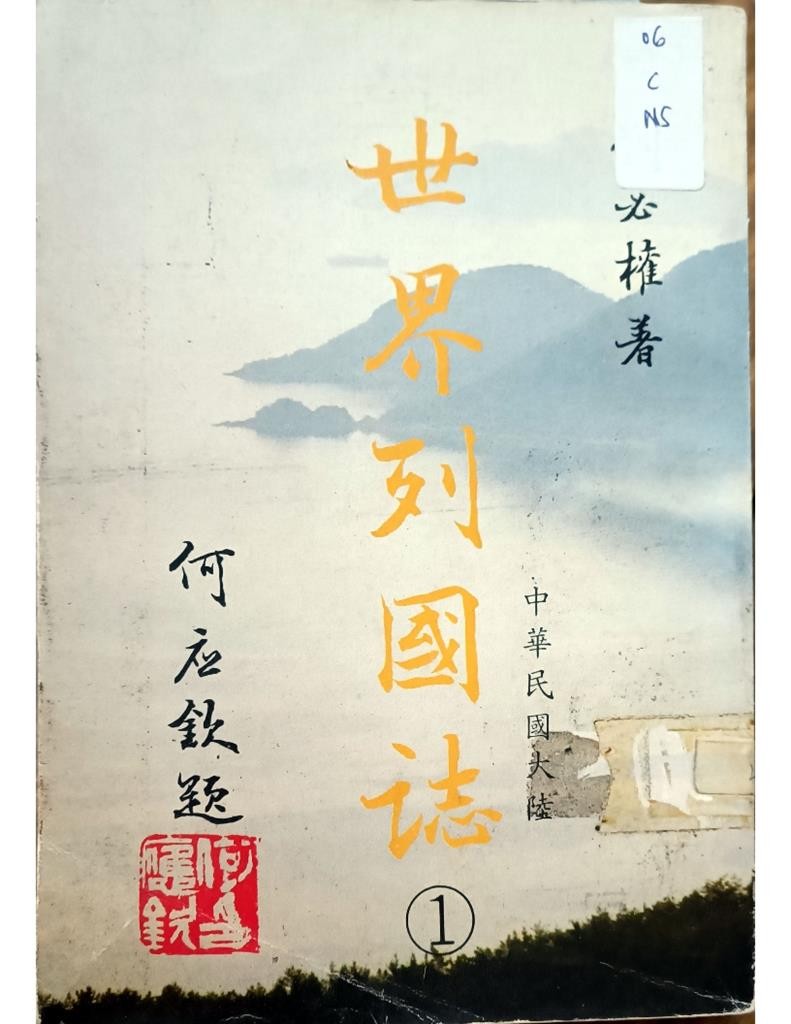 06
C
NS
必權著
世界列國誌
中華民國大陸
1
何应欽題
何應欽印